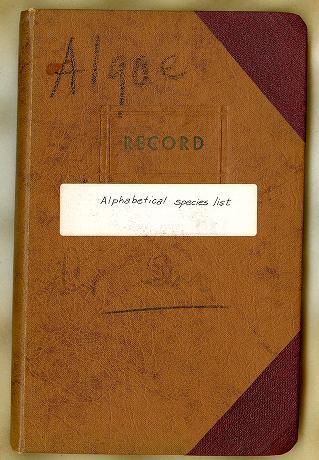 Algae
RECORD
Alphabetical species list